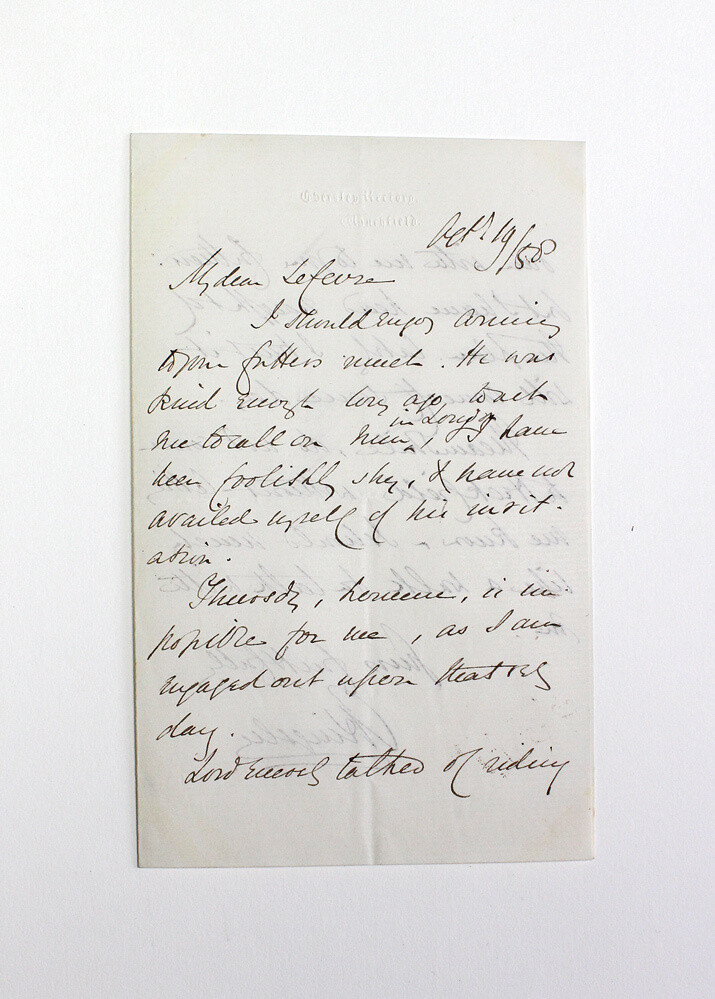 Eversley Rectory,
Winchfield.
Octr. 19/58
My dear Lefevre
I should enjoy coming
to your fathers much. He was
kind enough long ago, to ask
me to call on him, I have
in London
been foolishly shy, & have not
availed myself of his invit-
ation.
Thursday, however, is im-
possible for me, as I am
engaged out upon that very
day.
Lord talked of riding